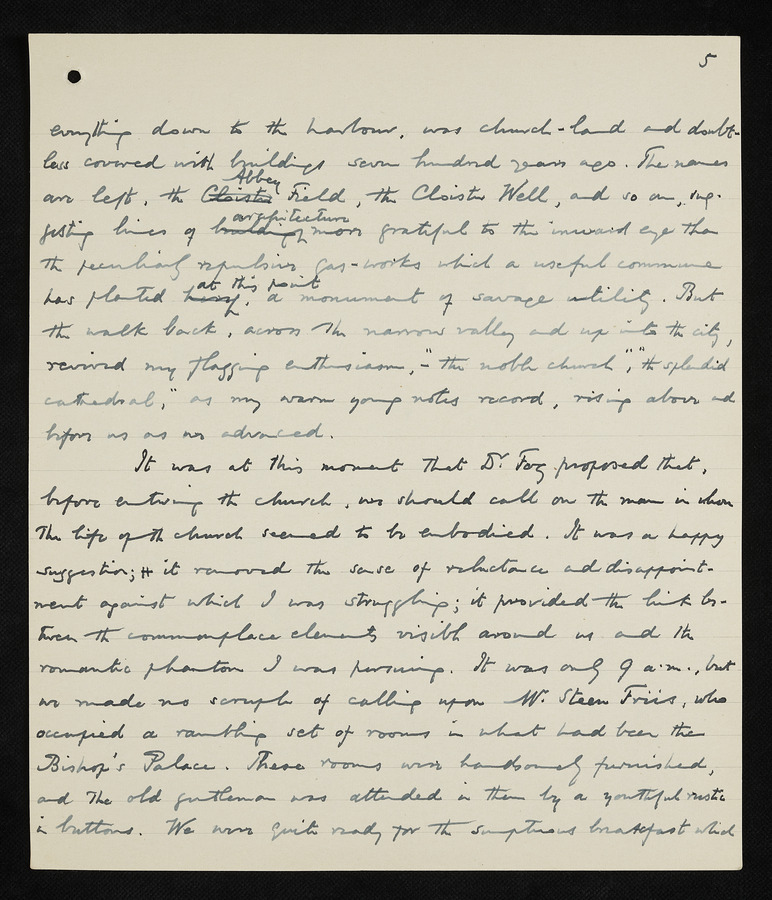 5
everything down to the harbour, was church-land and doubt-
less covered with buildings seven hundred years ago. The names
are left, the Cloister Abbey Field, the Cloister Well, and so on, sug-
gesting lines of buildings architecture more grateful to the inward eye than
the peculiarly repulsive gas-works which a useful commune
has planted here, at this point a monument of savage utility. But
the walk back, across the narrow valley and up into the city,
revived my flagging enthusiasm, - "the noble church", "the splendid
cathedral," as my warm young notes record, rising above and
before us as we advanced.
It was at this moment that Dr. Fog proposed that,
before entering the church, we should call on the man in whom
the life of the church seemed to be embodied. It was a happy
suggestion; it removed the sense of reluctance and disappoint-
ment against which I was struggling; it provided the link be-
tween the commonplace elements visible around us and the
romantic phantom I was pursuing. It was only 9 a.m., but
we made no scruple of calling upon Mr. Steen Friis, who
occupied a rambling set of rooms in what had been the
Bishop's Palace. These rooms were handsomely furnished,
and the old gentleman was attended in them by a youthful rustic
in buttons. We were quite ready for the sumptuous breakfast which